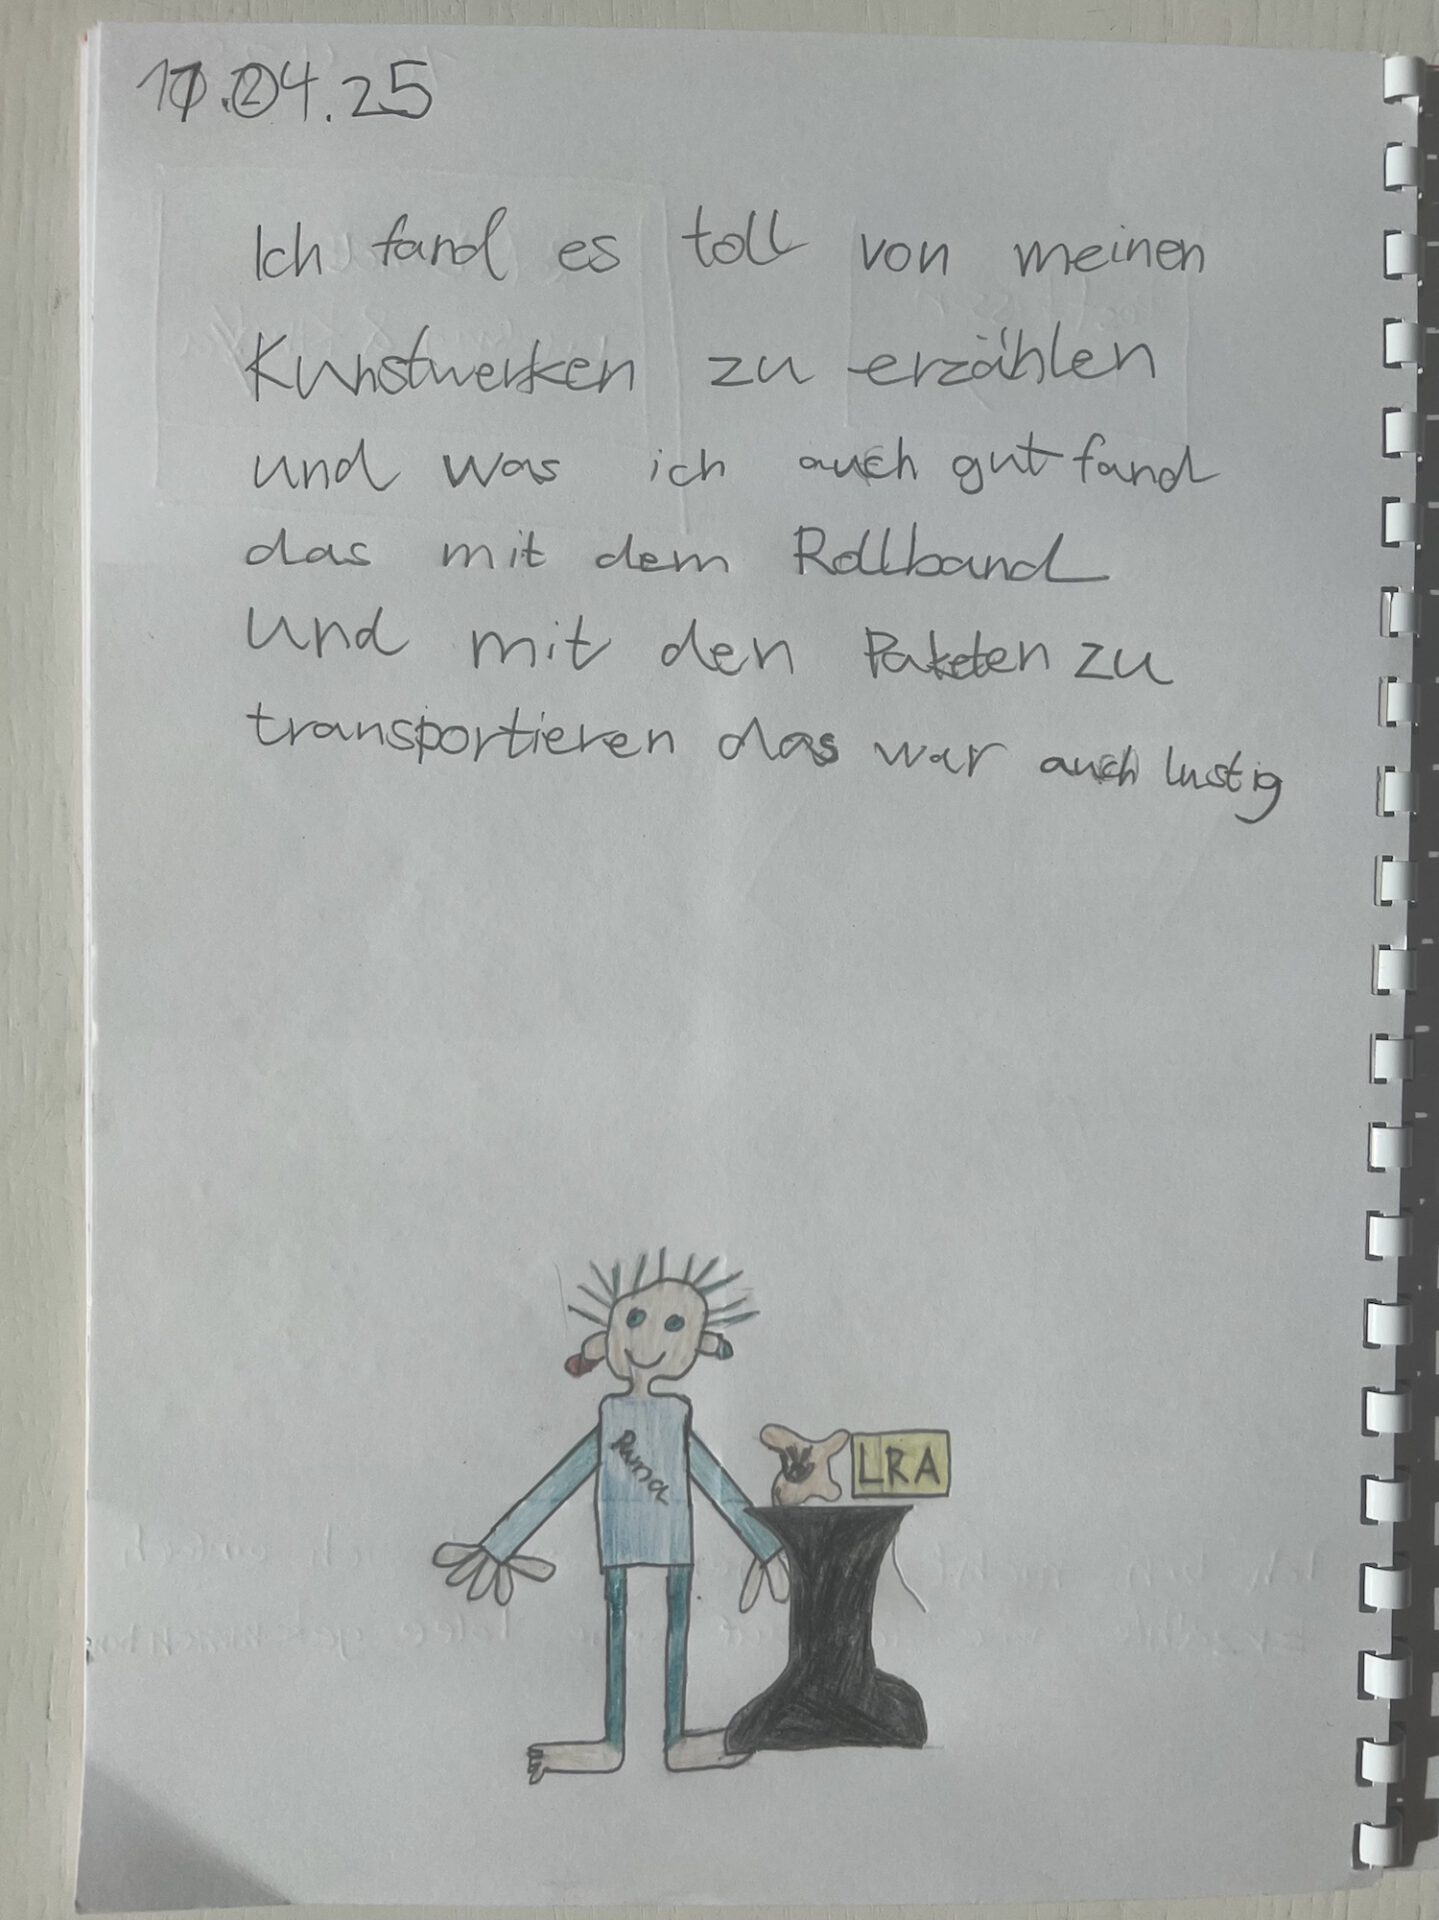 .04.25
Ich fand es toll von meinen
Kunstwerken zu erzählen
und was ich auch gut fand
das mit dem Rollband
Und mit den Paketen zu
transportieren das war auch lustig
LRA